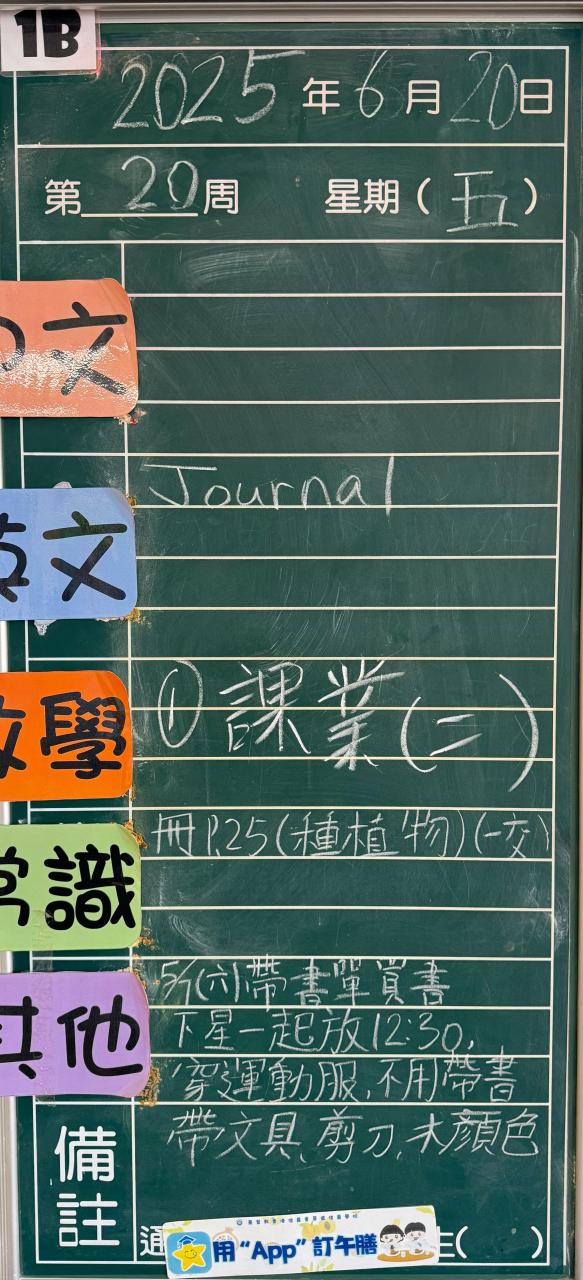 1B
2025年6月20日
第20周 星期(五)
文
Journal
文
①課業(二)
數學
冊P.25(種植物)(一交)
常識
5/7(六)帶書單買書
下星一起放12:30,
穿運動服,不用帶書
其他
帶文具,剪刀,木顏色
備註
用“App”訂午膳